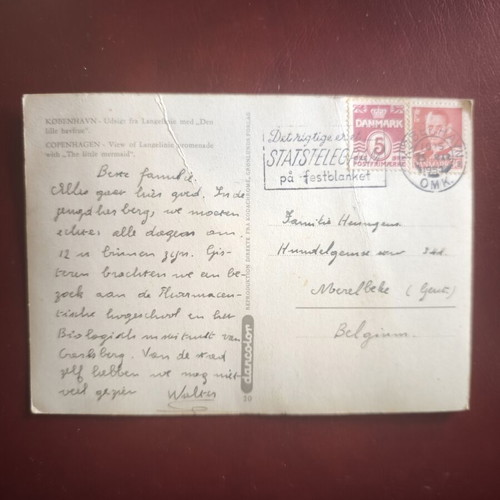 KØBENHAVN - Udsigt fra Langelinie med „Den
lille havfrue".
COPENHAGEN - View of Langelinie promenade
with „The little mermaid".
Beste familie.
Alles gaat hier goed. In de
jeugdherberg, we moeten
echter alle dagen om
12 u binnen zijn. Gis-
teren brachten we een be-
zoek aan de Pharmaceu-
tische hogeschool en het
Biologisch instituut van
Carlsberg. Van de stad
zelf hebben we nog niet
veel gezien Walter
dancolor
DANMARK
5
POSTFRIMÆRKE
Det rigtige er et
STATSTELEGRAM
på festblanket
OMK.
Familie
Hundelgemse
Merelbeke (Gent)
Belgium